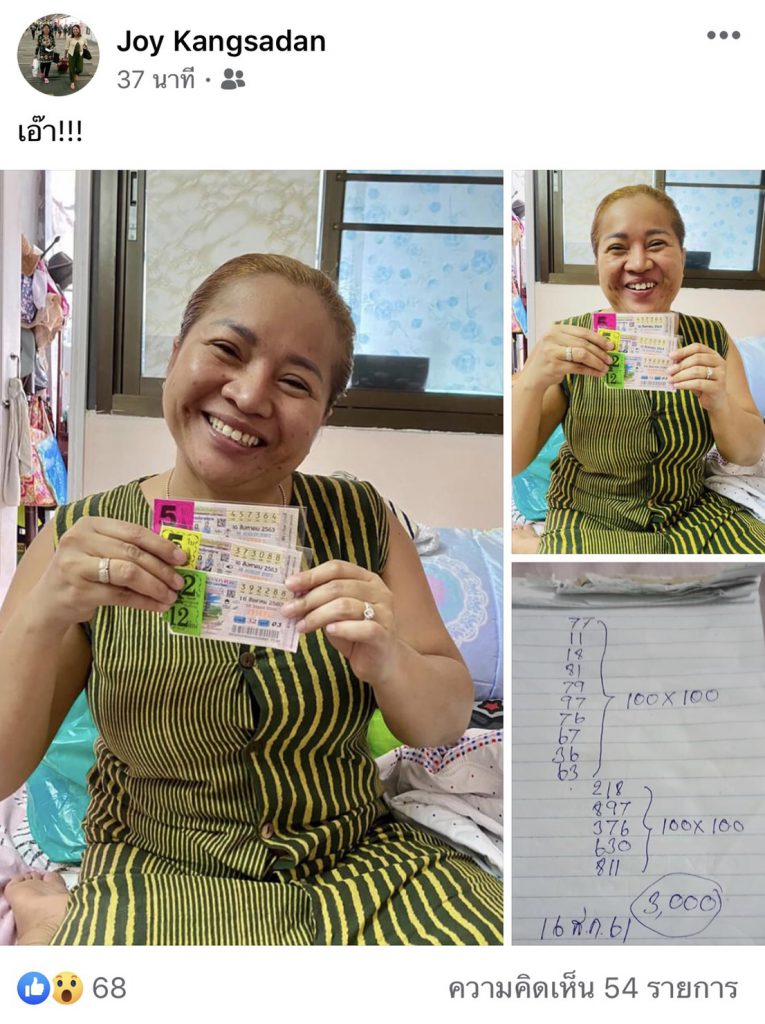 Joy Kangsadan
37 นาที ·
เอ๊า!!!
5
457364
16 สิงหาคม 2563
5
373088
16 สิงหาคม 2563
12
392288
16 สิงหาคม 2563
12
77
11
18
81
79
97
76
67
36
63
100 X 100
218
897
376
630
811
100X 100
3,000
16 ส.ค. 61
68
ความคิดเห็น 54 รายการ